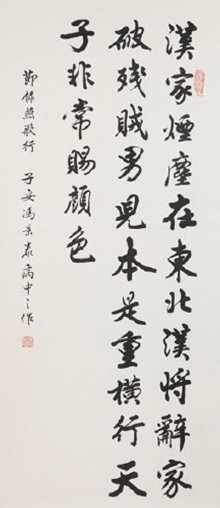 漢家煙塵在東北漢將辭家
破殘賊男兒本是重橫行天
子非常賜顏色
節錄燕歌行 子安馮景 中之作